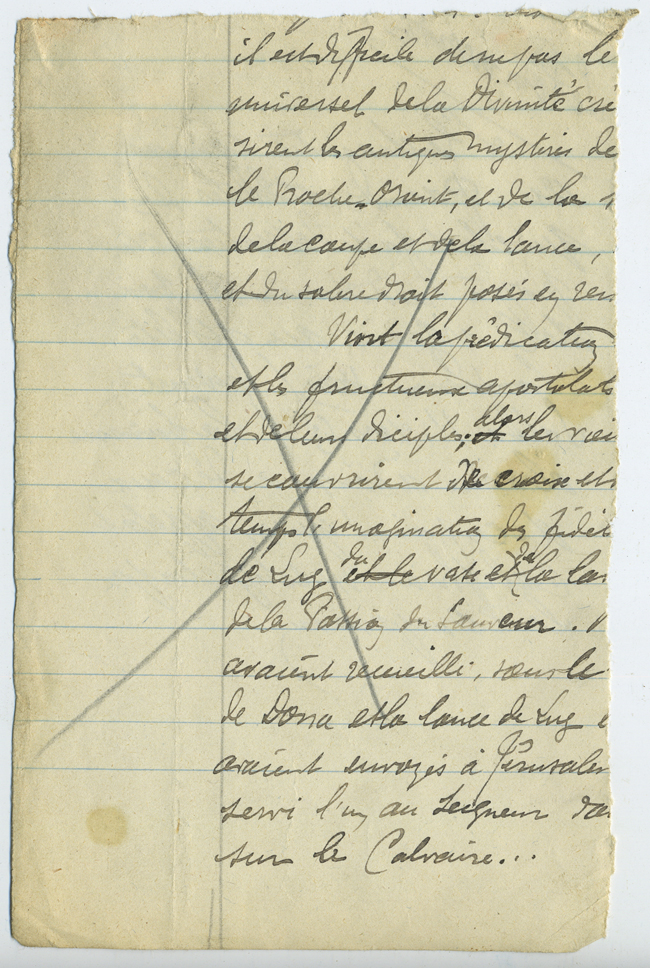 il est difficile de ne pas le
universel de la Divinité cré
sirent les antiques mystères de
le Proche-Orient, et de la
de la coupe et de la lance,
et du sabre droit posés en
Vint la prédication
et les fructueux apostolats
et de leurs disciples; et alors les
se couvrirent de croix et
temps l'imagination des fidèl
de Lug et le du vase et de la la
de la Passion du Sauveur.
avaient recueilli, sous le
de Dosra et la lance de Lug
avaient envoyés à Jérusalem
servi l'un au Seigneur da
sur le Calvaire...